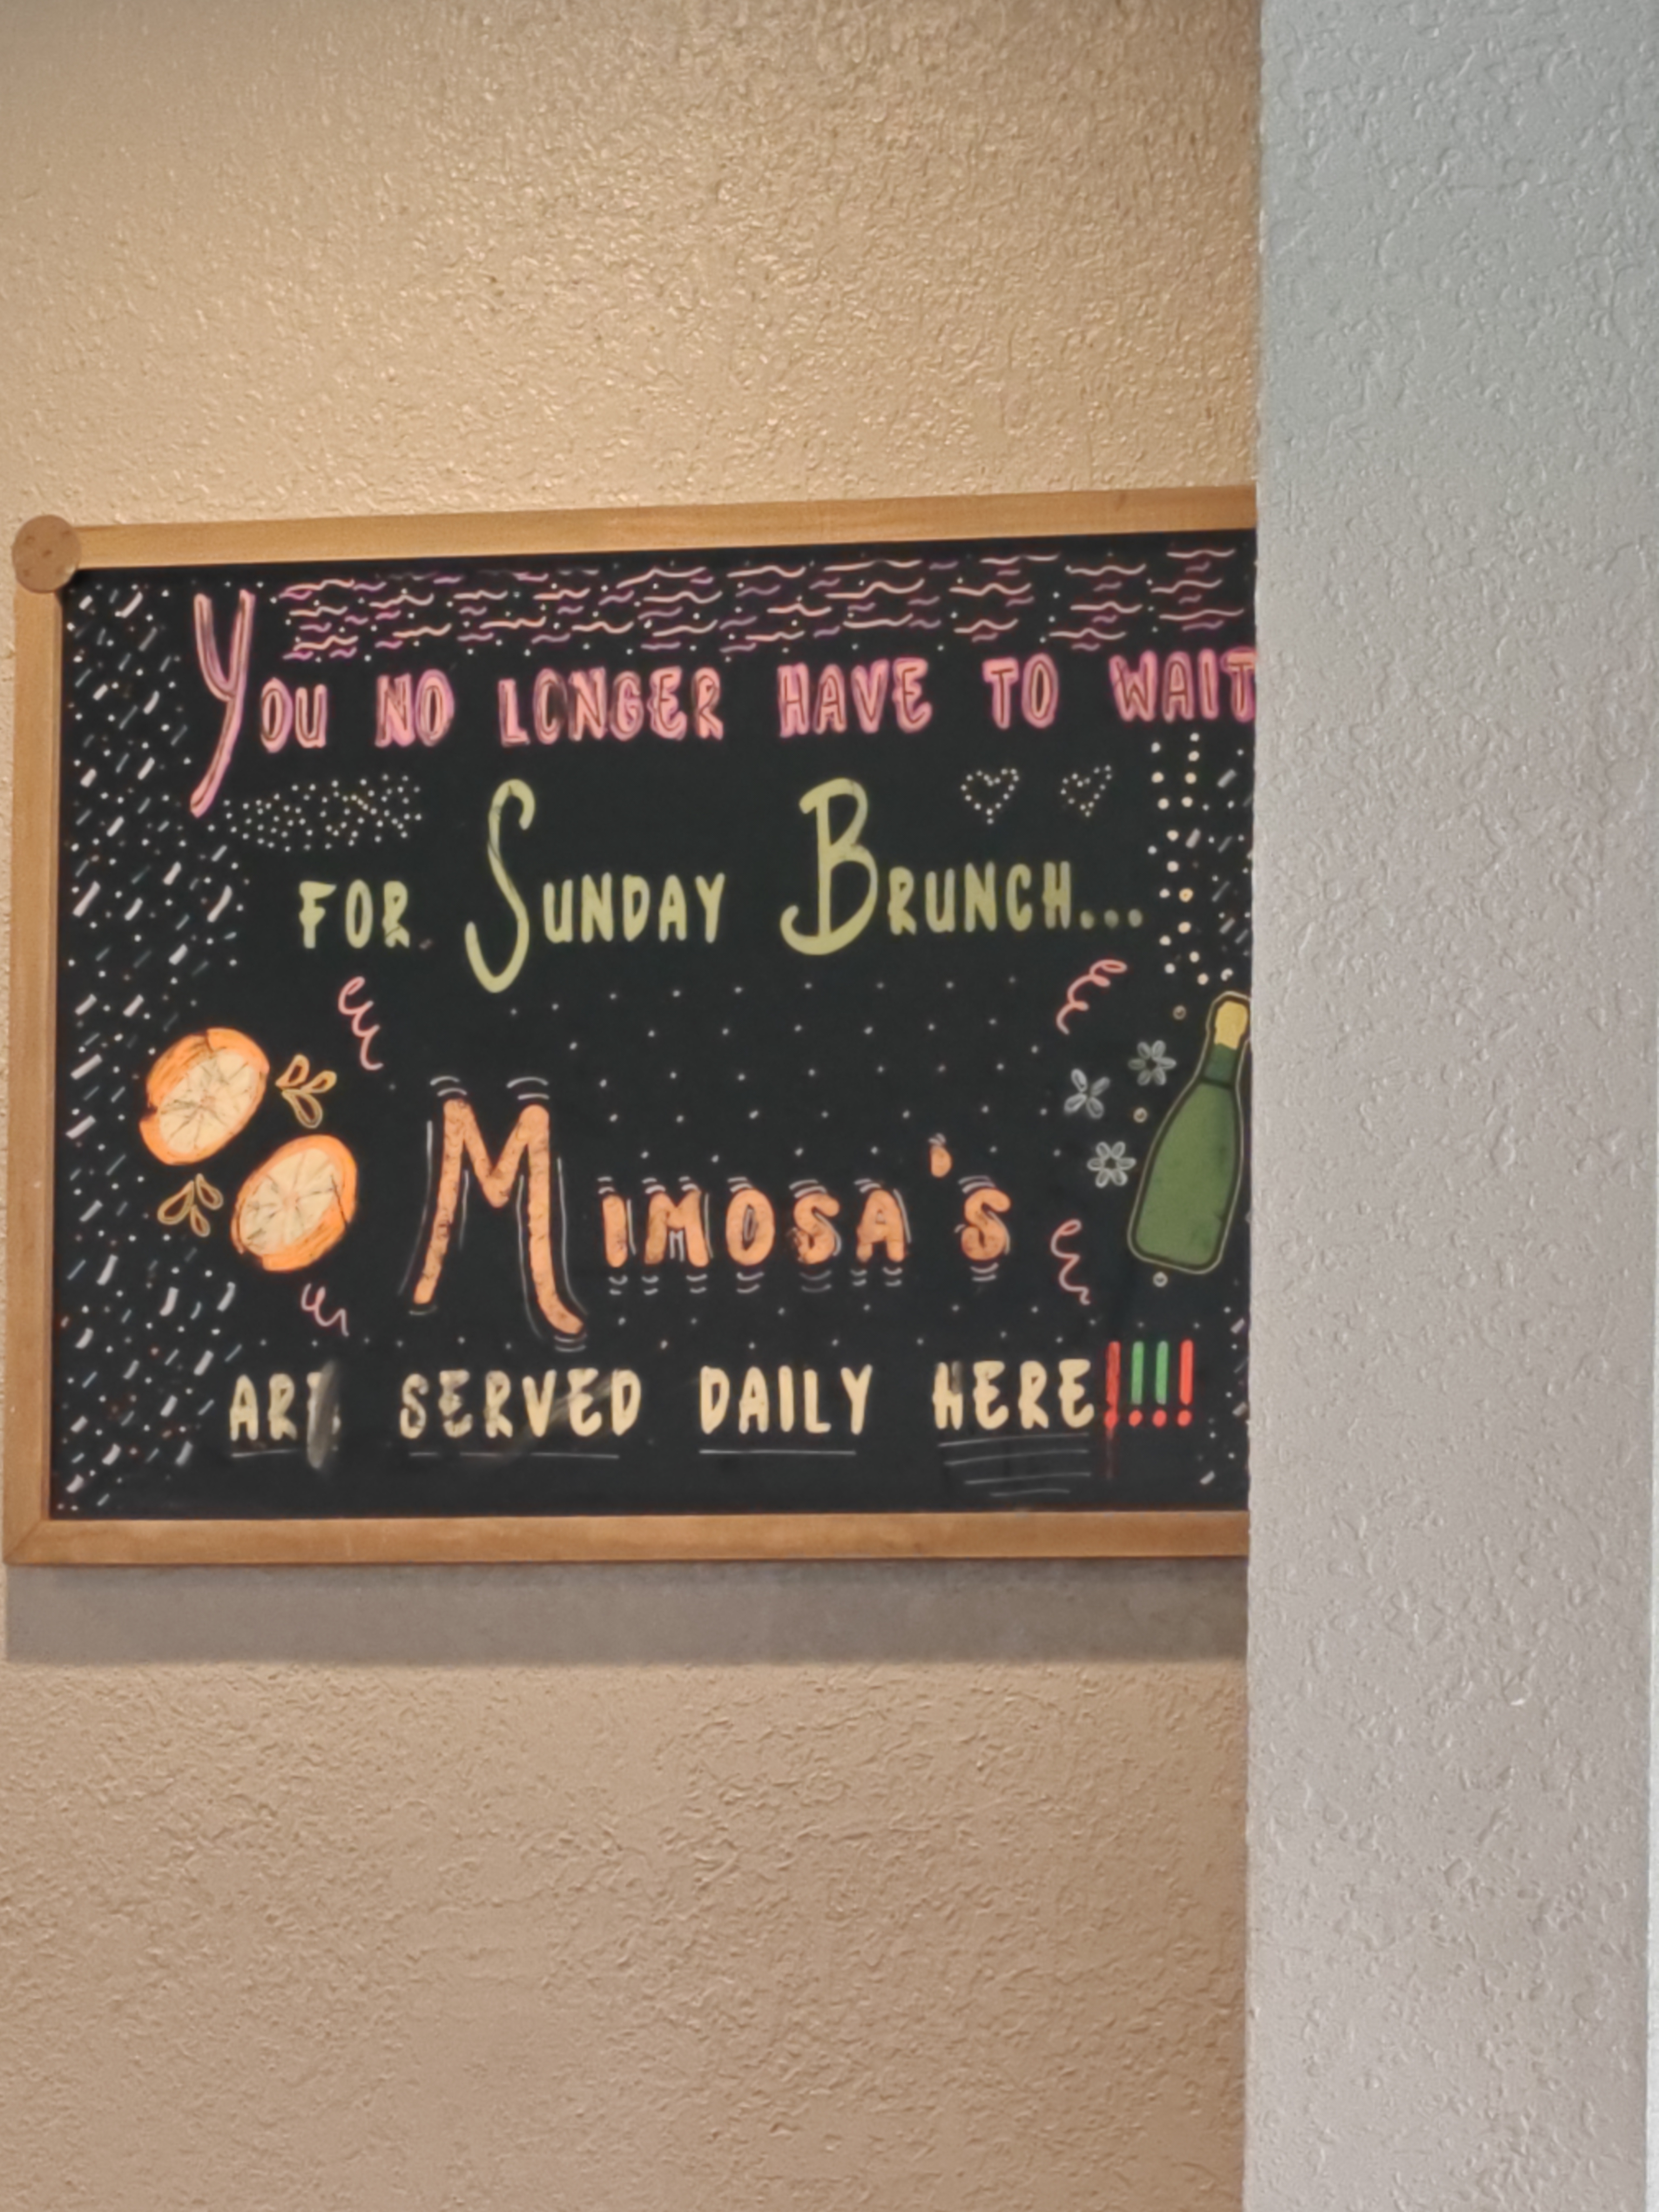 You NO LONGER HAVE TO WAIT
FOR SUNDAY BRUNCH...
MIMOSA'S
ARE SERVED DAILY HERE!!!!